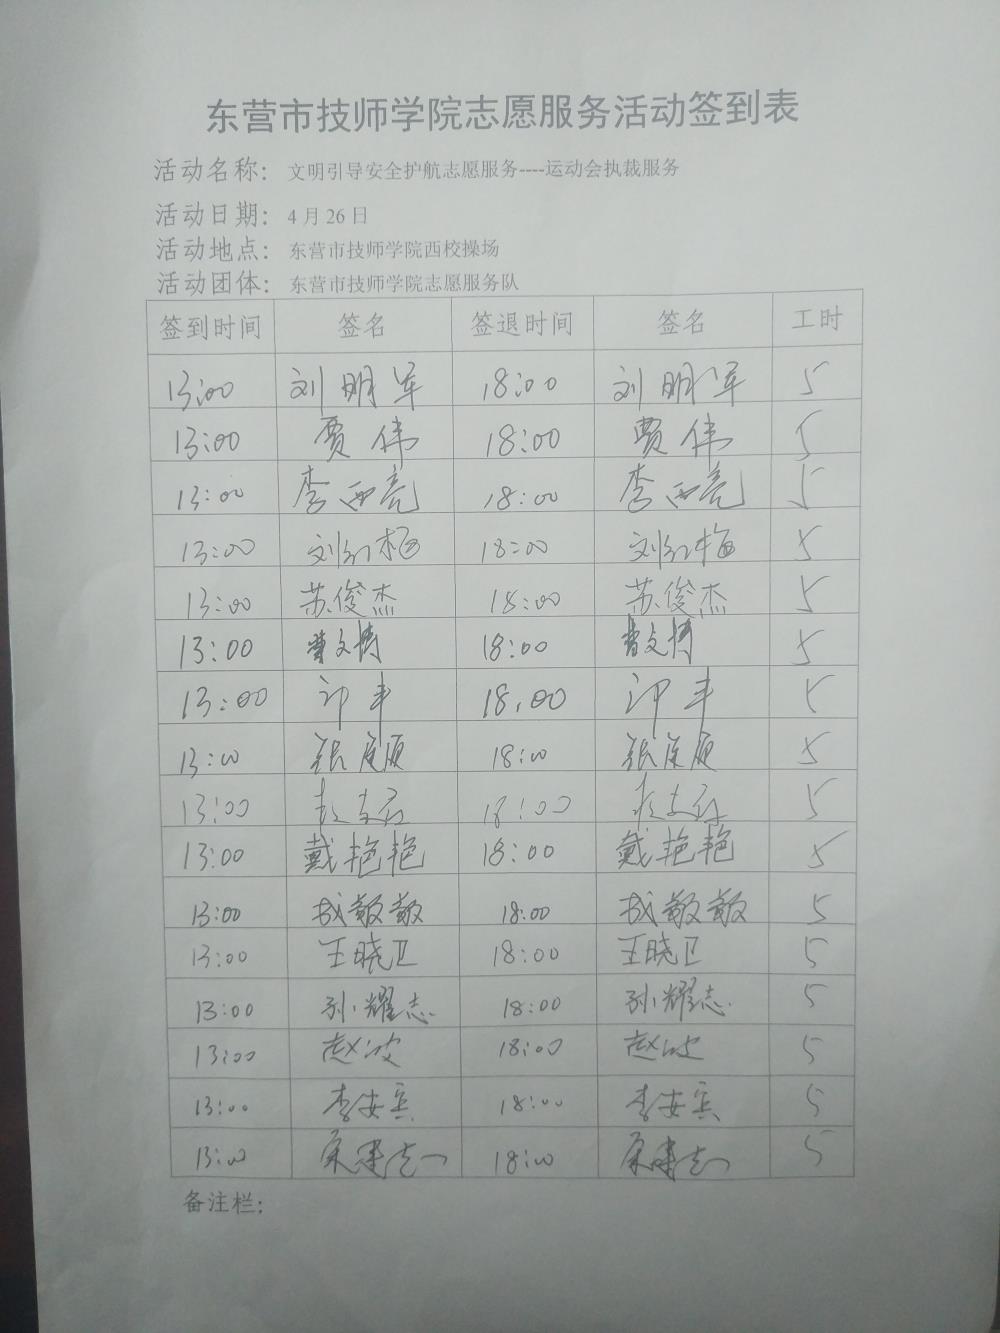 东营市技师学院志愿服务活动签到表
活动名称： 文明引导安全护航志愿服务----运动会执裁服务
活动日期： 4 月 26 日
活动地点： 东营市技师学院西校操场
活动团体： 东营市技师学院志愿服务队
签到时间 签名 签退时间 签名 工时
13:00 刘明军 18:00 刘明军 5
13:00 贾伟 18:00 贾伟 5
13:00 李西亮 18:00 李西亮 5
13:00 刘红梅 18:00 刘红梅 5
13:00 苏俊杰 18:00 苏俊杰 5
13:00 曹文博 18:00 曹文博 5
13:00 18:00 5
13:00 18:00 5
13:00 18:00 5
13:00 戴艳艳 18:00 戴艳艳 5
13:00 成敏敏 18:00 成敏敏 5
13:00 王晓卫 18:00 王晓卫 5
13:00 孙耀志 18:00 孙耀志 5
13:00 赵波 18:00 赵波 5
13:00 李安宾 18:00 李安宾 5
13:00 18:00 5
备注栏：